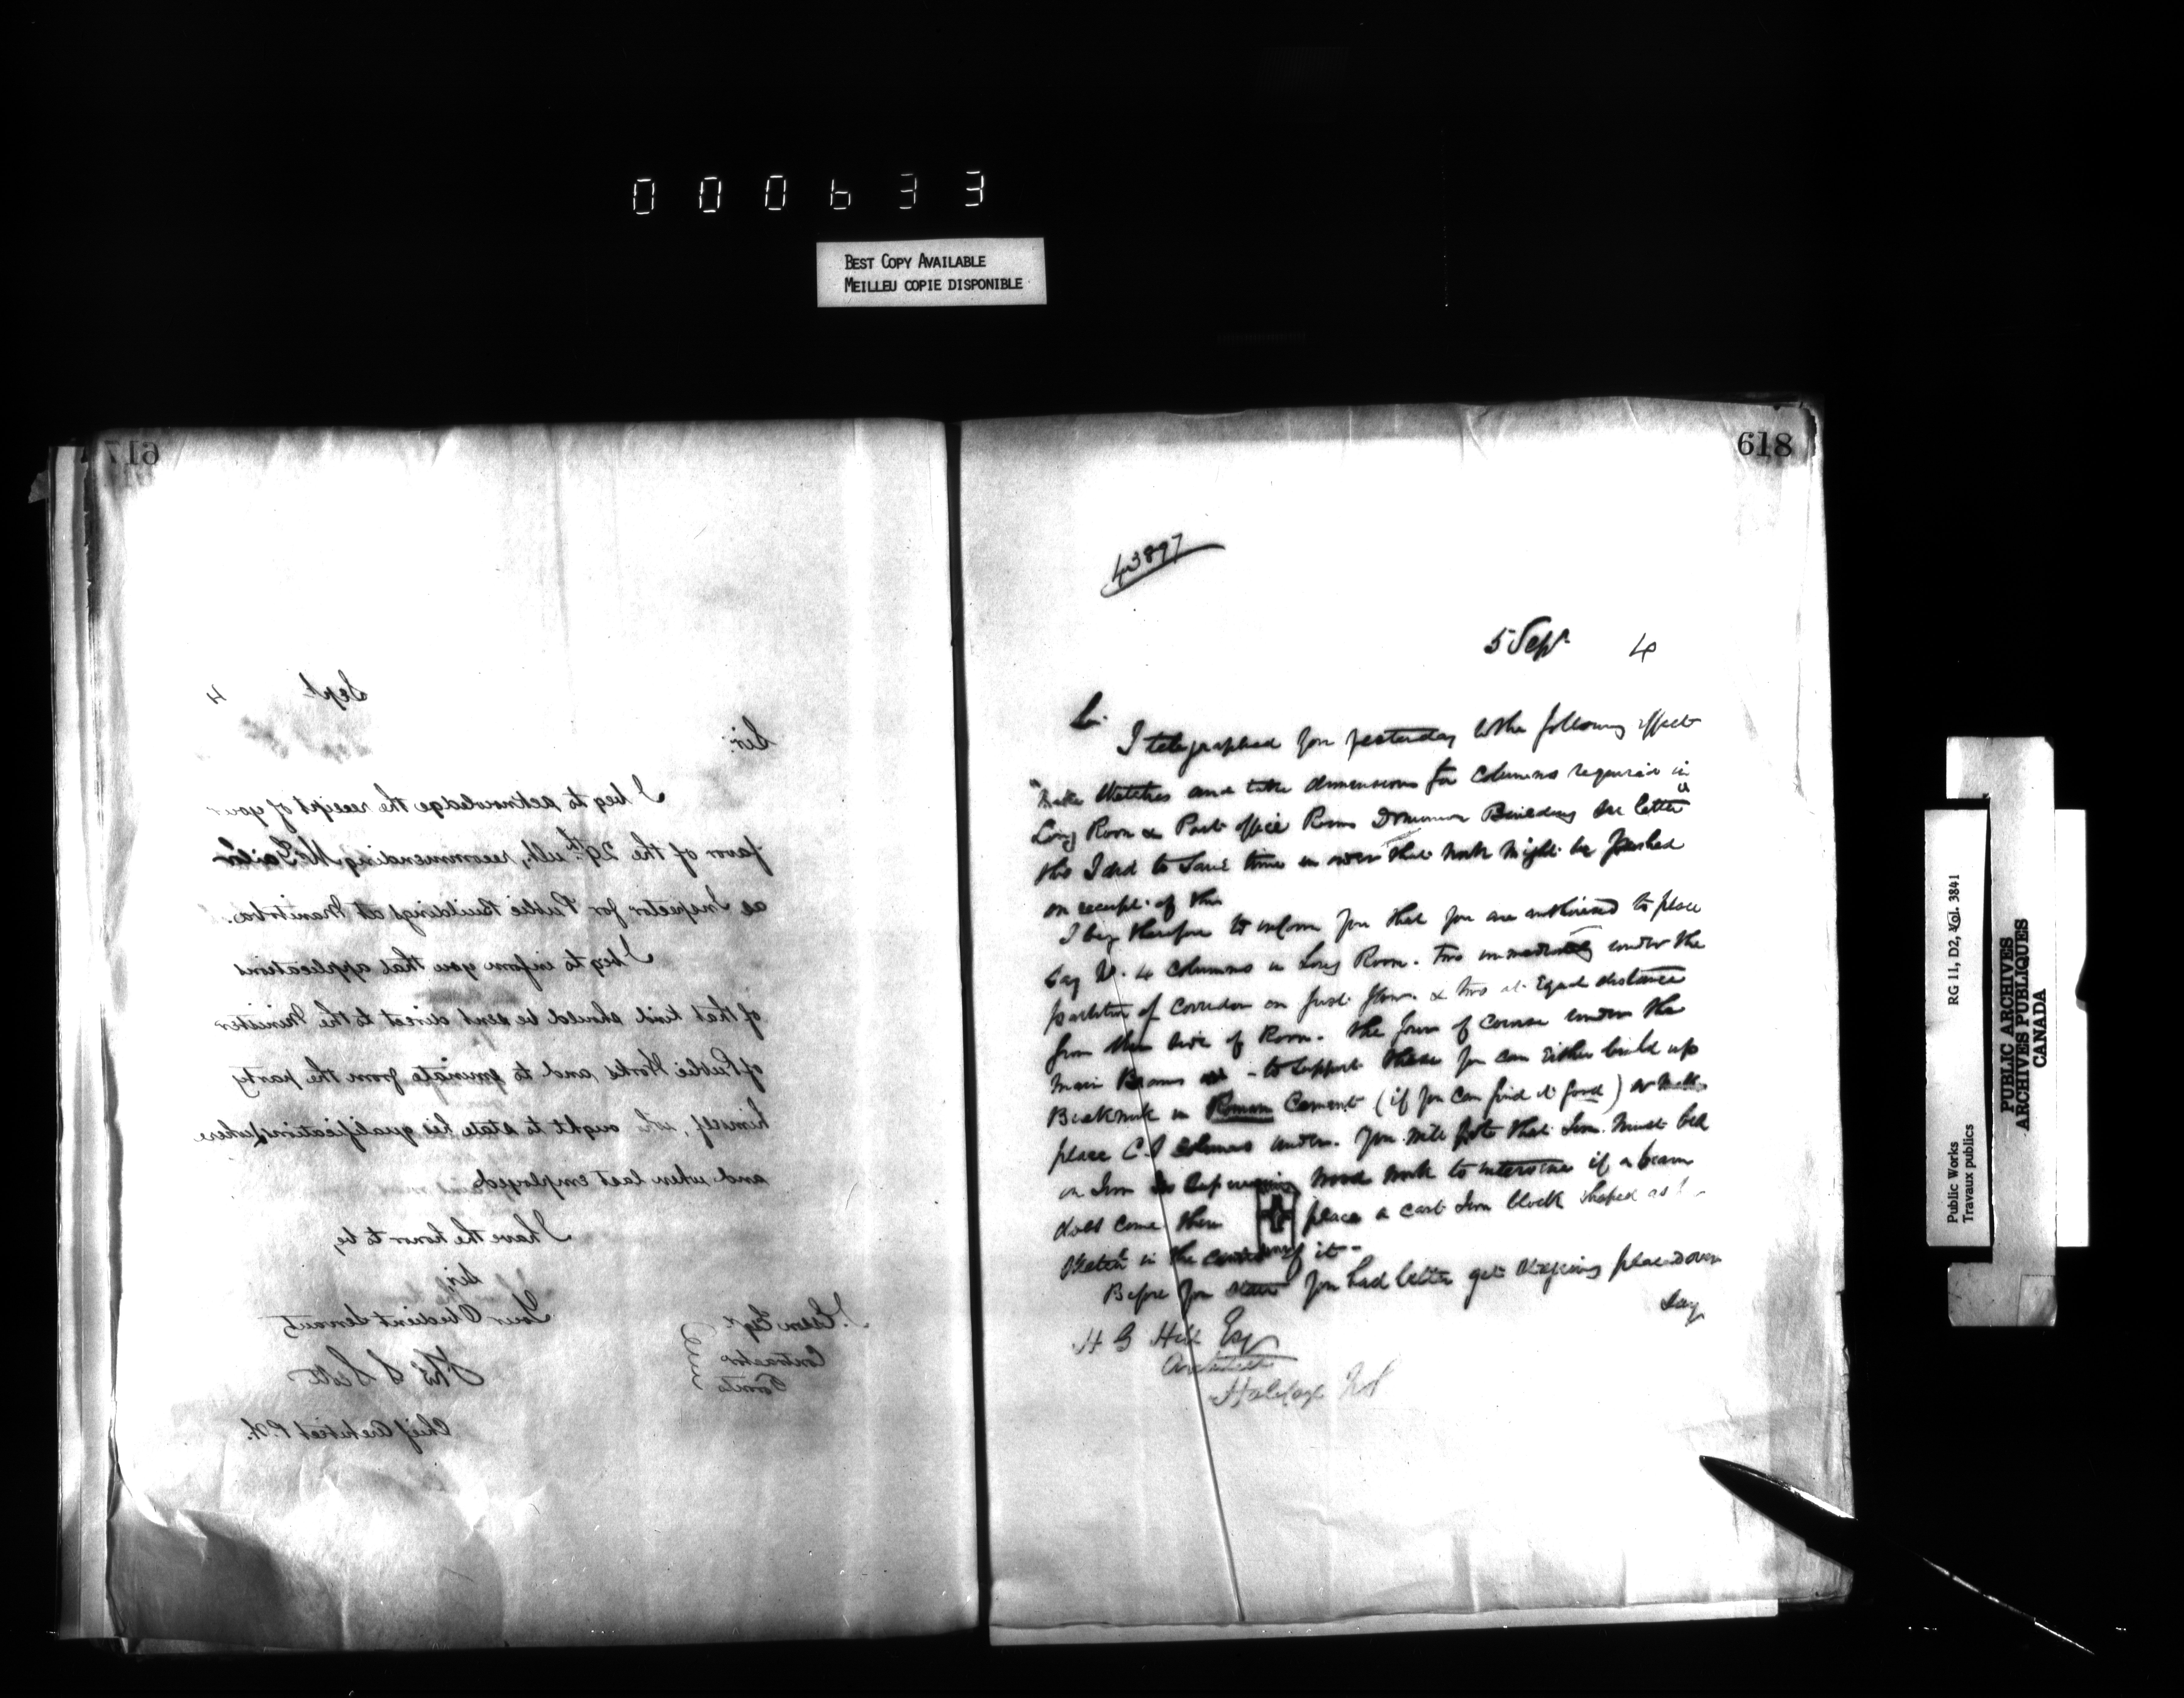 000633
BEST COPY AVAILABLE
MEILLEU COPIE DISPONIBLE
617
Sept 4
Sir:
I beg to acknowledge the receipt of your
favor of the 29th ult, recommending Mr
as Inspector for Public Buildings at Manitoba.
I beg to inform you that applications
of that kind should be sent direct to the Minister
of Public Works and to eminate from the party
himself, who ought to state his qualifications, where
and when last employed.
I have the honor to be,
Sir,
Your Obedient Servant,
Thos S Scott
Chief Architect P.W.
Esqr
Contractor
Toronto
618
43897
5 Sept 4
Sir
I telegraphed you yesterday to the following effect
"Make sketches and take dimensions for columns required in
Long Room & Post office Room Dominion Building see letter"
this I did to save time in order that work might be pushed
on receipt of this
I beg therefore to inform you that you are authorized to place
say 4 columns in Long Room. Two immediately under the
partition of corridor on first floor & two at equal distance
from side of Room. The four of course under the
main Beams - to support these you can either build up
Brickwork in Roman Cement (if you can find it good) or
place C.I columns under. You will note that Iron must bed
on Iron wood work to intervene if a beam
does come there place a cast Iron block shaped as
Sketch in the centre of it -
Before you start you had better get
say
H G Hill Esq
Architect
Halifax NS
Public Works RG 11, D2, Vol. 3841
Travaux publics
PUBLIC ARCHIVES
ARCHIVES PUBLIQUES
CANADA